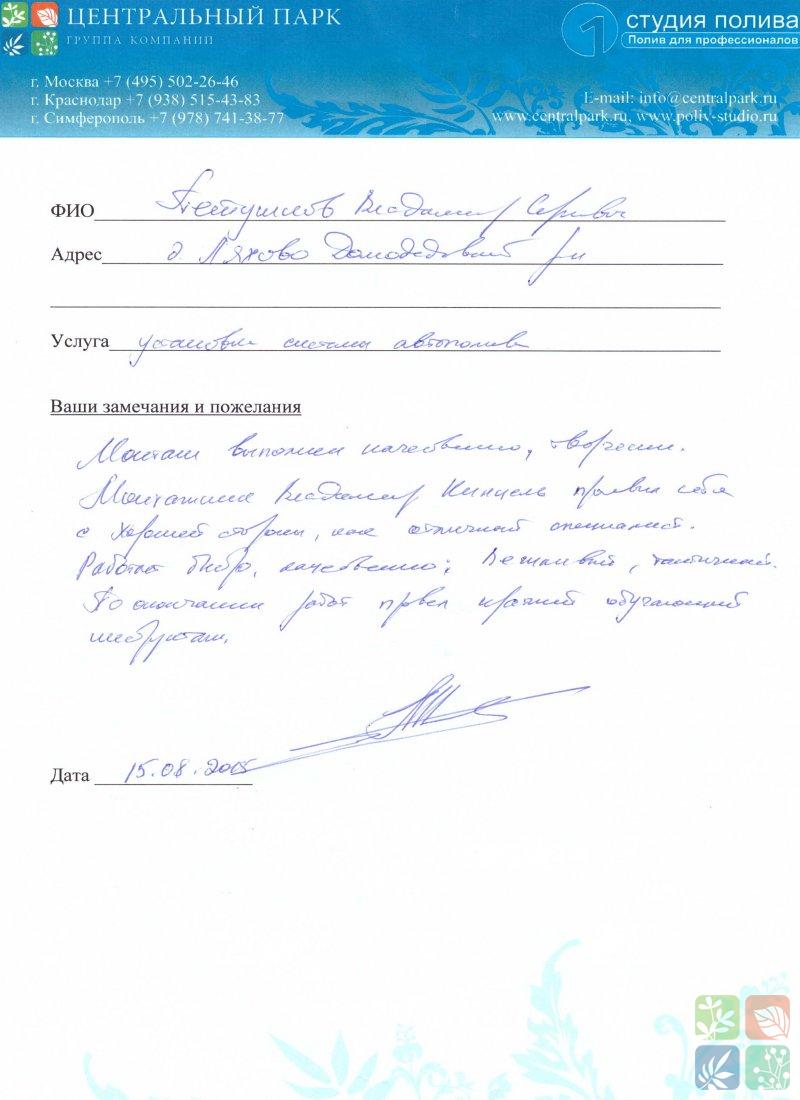 ЦЕНТРАЛЬНЫЙ ПАРК
ГРУППА КОМПАНИЙ
1 студия полива
Полив для профессионалов
г. Москва +7 (495) 502-26-46
г. Краснодар +7 (938) 515-43-83
г. Симферополь +7 (978) 741-38-77
E-mail: info@centralpark.ru
www.centralpark.ru, www.poliv-studio.ru
ФИО Владимир
Адрес д Ляхово Домодедовский р-н
Услуга установка системы автополива
Ваши замечания и пожелания
Монтаж выполнен качественно, творчески.
Монтажник Владимир проявил себя
с хорошей стороны, как отличный специалист.
Работает быстро, качественно; Вежливый, тактичный.
По окончании работ провел краткий обучающий
инструктаж.
Дата 15.08.2015